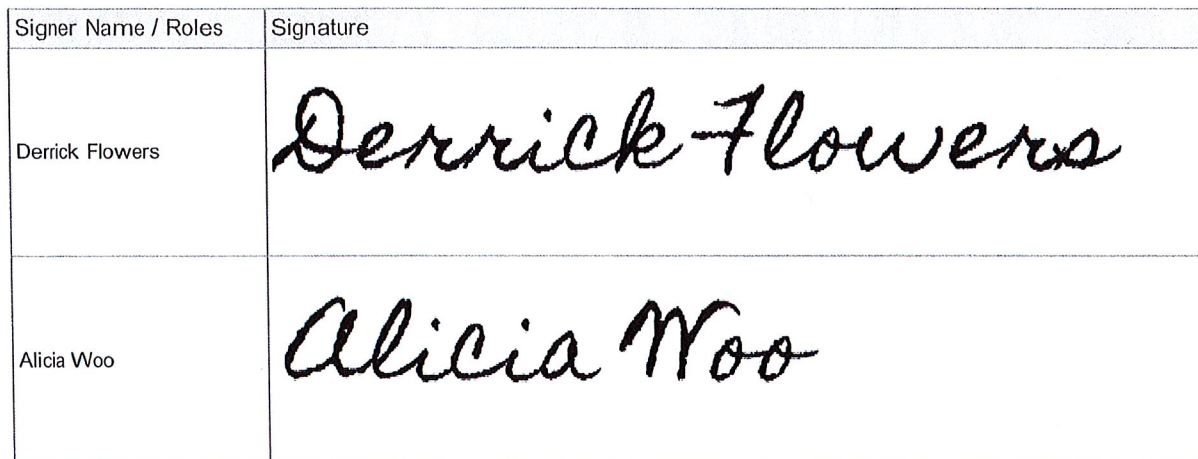 Signer Name / Roles Signature
Derrick Flowers Derrick Flowers
Alicia Woo Alicia Woo